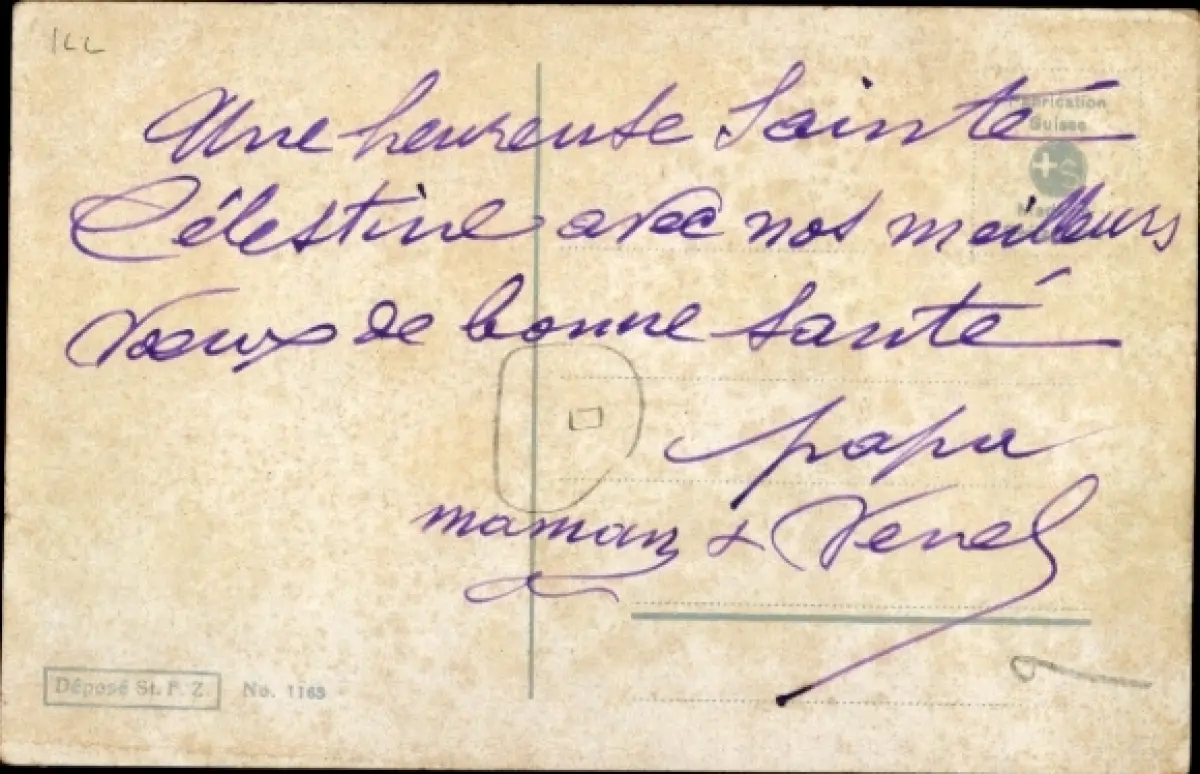 Une heureuse Sainte
Célestine avec nos meilleurs
Vœux de bonne santé
papa
maman &
Fabrication
Suisse
Déposé St. F. Z. No. 1163